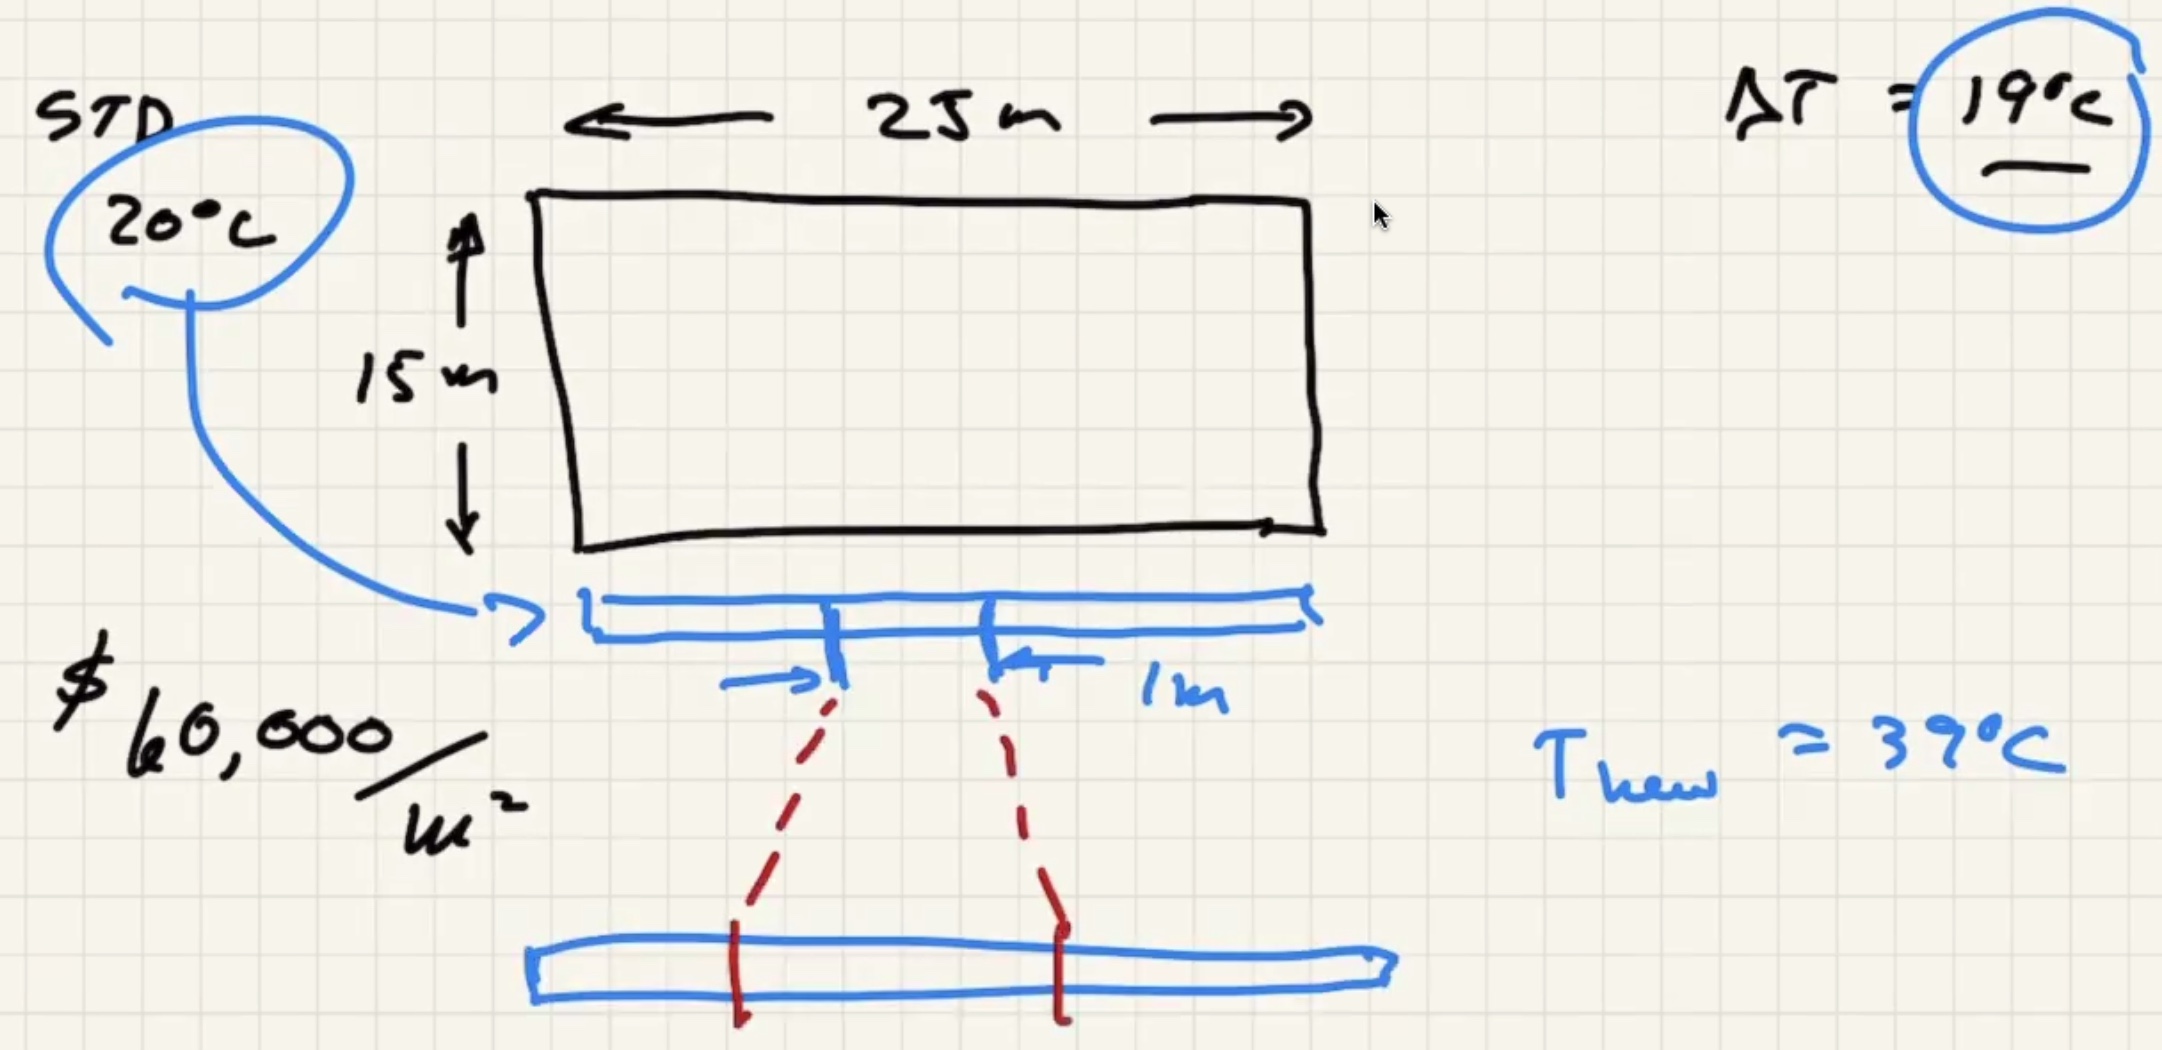 STD
20°C
25m
ΔT = 19°C
15m
$60,000/m²
1m
Tnew = 39°C